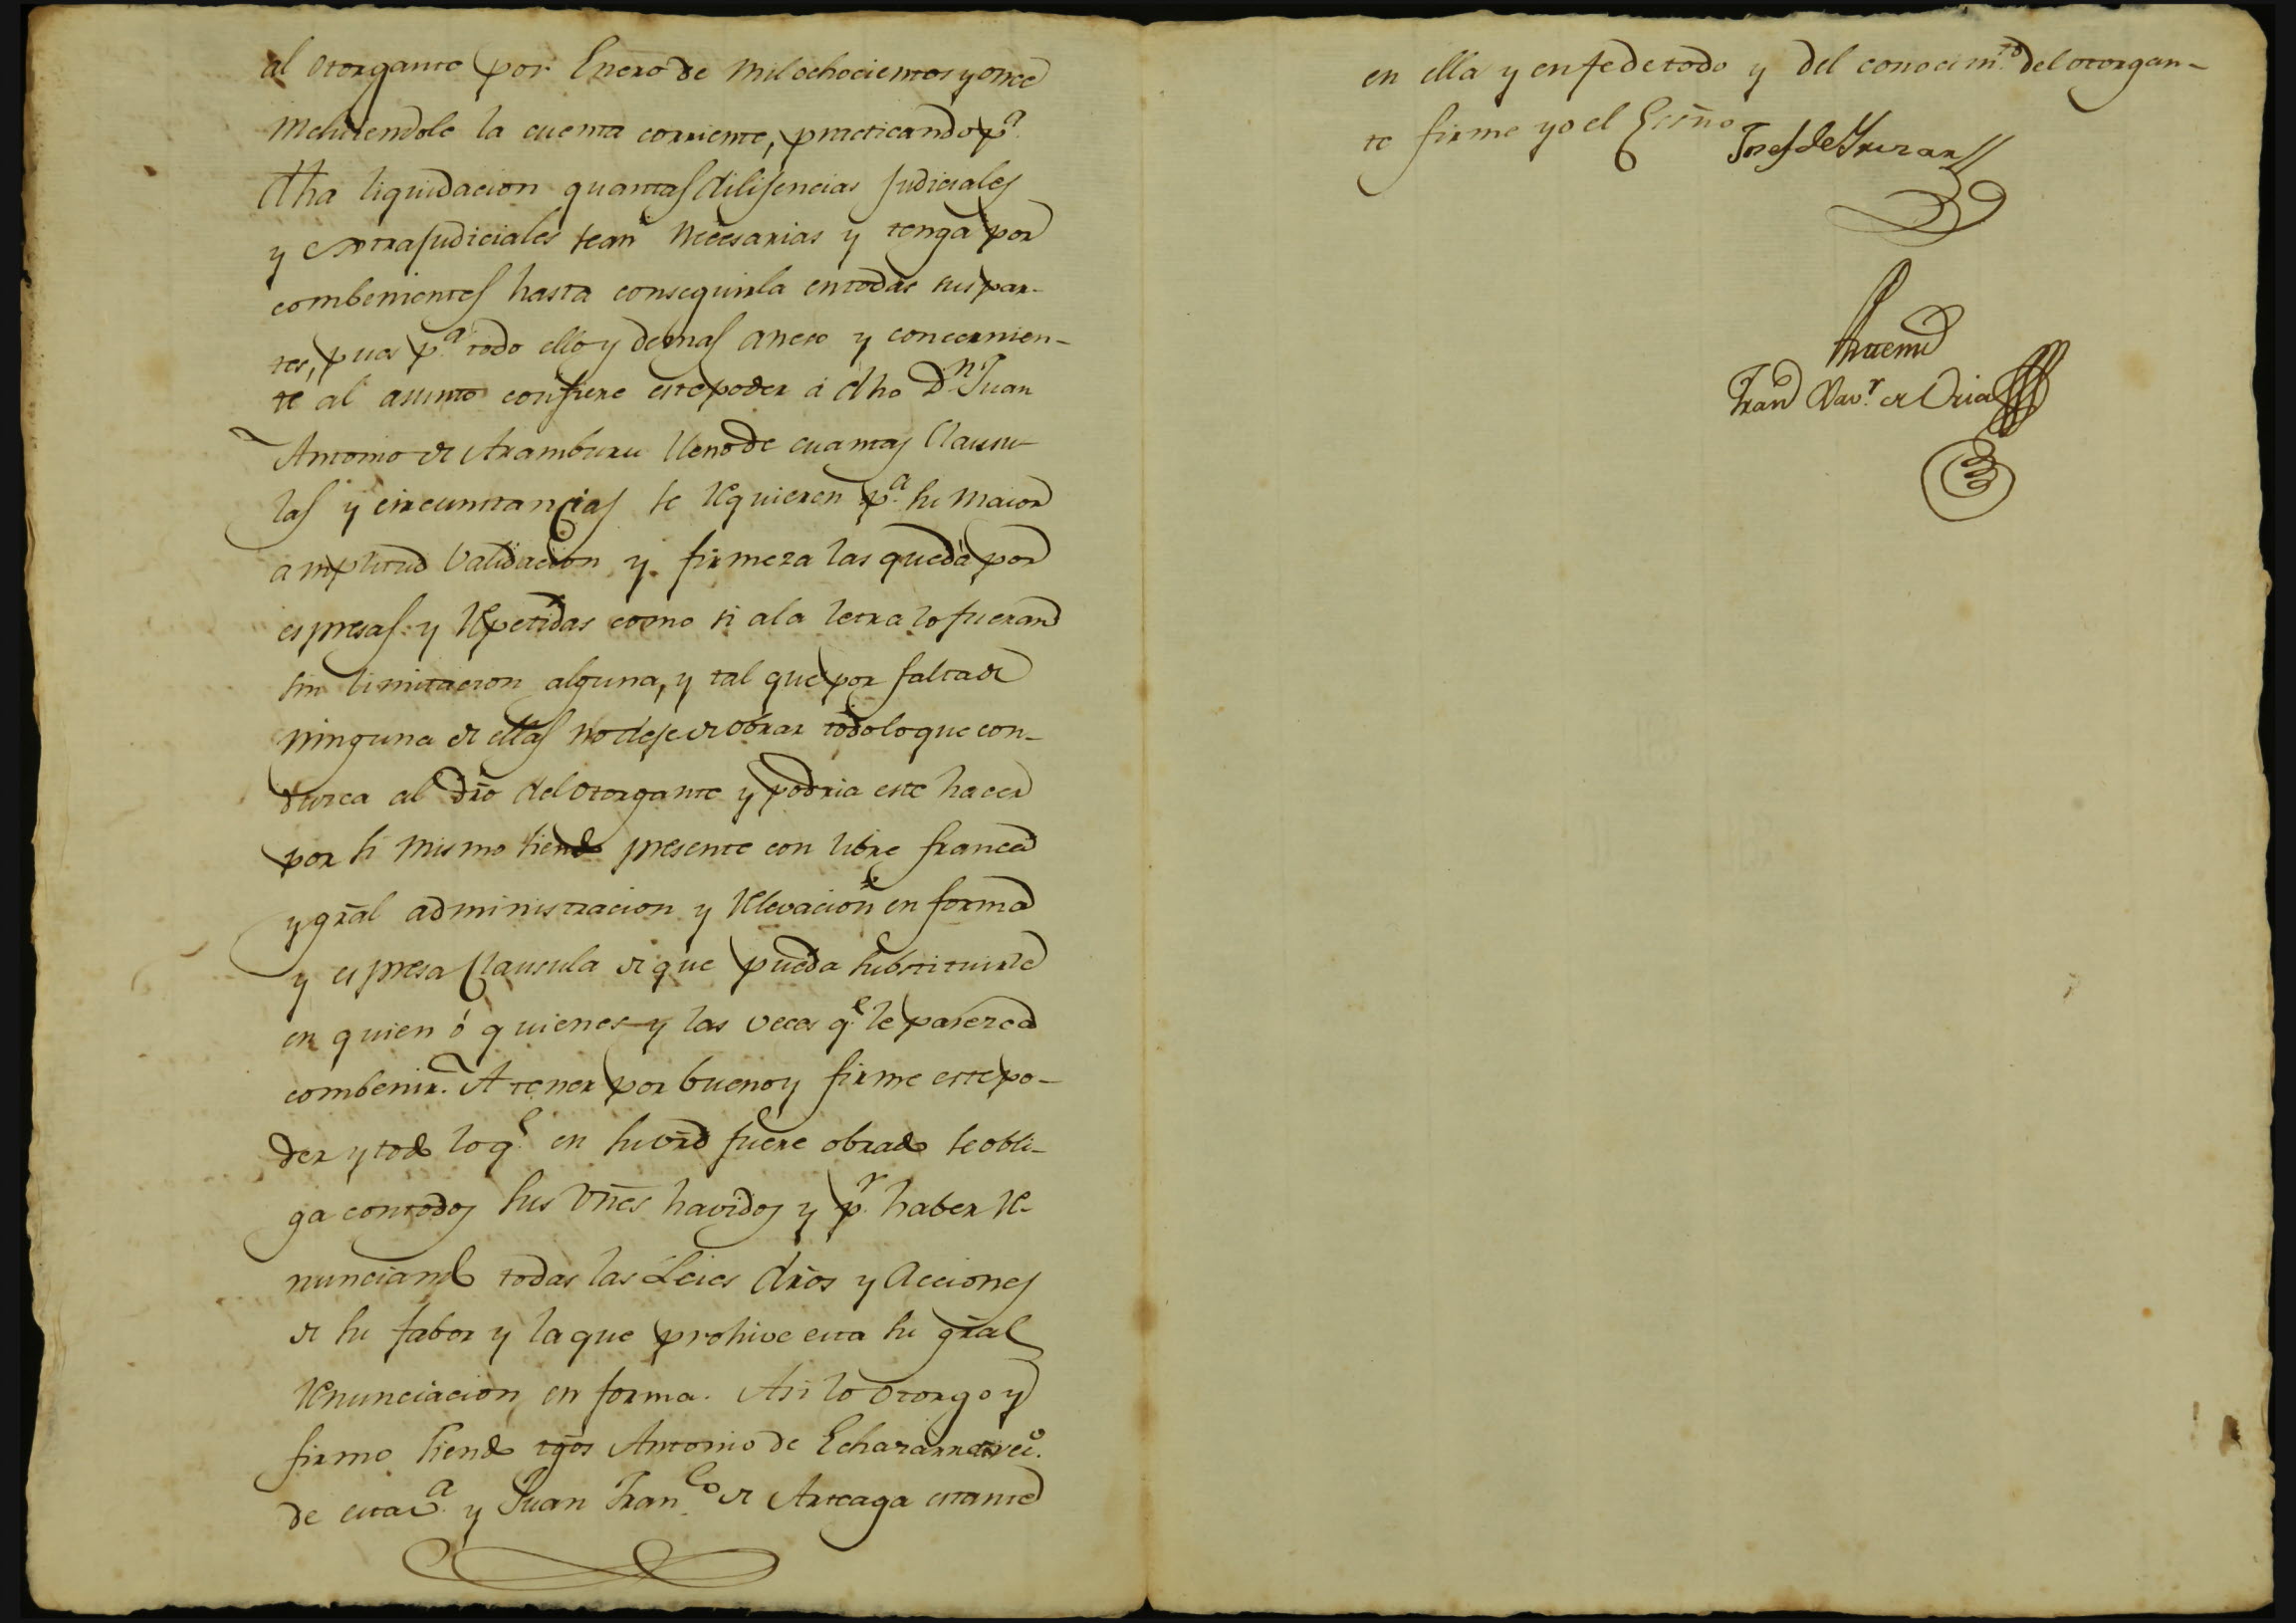 al otorgante por Enero de mil ochocientos y once
incluiendole la cuenta corriente, practicando p.ª
dha liquidacion quantas dilijencias judiciales
y extrajudiciales sean necesarias y tenga por
combenientes hasta conseguirla en todas sus par-
tes, pues p.ª todo ello y demas anexo y concernien-
te al asunto confiere este poder á dho D.n Juan
Antonio de Aramburu lleno de cuantas clausu
las y circunstancias se requieren p.ª su maior
amplitud validacion y firmeza las que dá por
espresas y repetidas como si a la letra lo fueran
sin limitacion alguna, y tal que por falta de
ninguna de ellas no deje de obrar todo lo que con-
durca al dro del otorgante y podria este hacer
por si mismo siendo presente con libre franca
y gral administracion y relevacion en forma
y espresa clausula de que pueda substituirle
en quien ó quienes y las veces q.e le parezca
combenir. A tener por bueno y firme este po-
der y todo lo q.e en su vrd fuere obrado se obli-
ga con todos sus vnes havidos y p.r haber re-
nunciando todas las Leies dros y acciones
de su fabor y la que prohive esta su gral
renunciacion en forma. Asi lo otorgo y
firmo siendo tgos Antonio de Echazarreta vec.o
de esta V.ª y Juan Fran.co de Arteaga estante
en ella y en fe de todo y del conocim.to del otorgan-
te firme yo el Essno
Josef de Yruzar
Antemi
Fran Xav.r de Oria